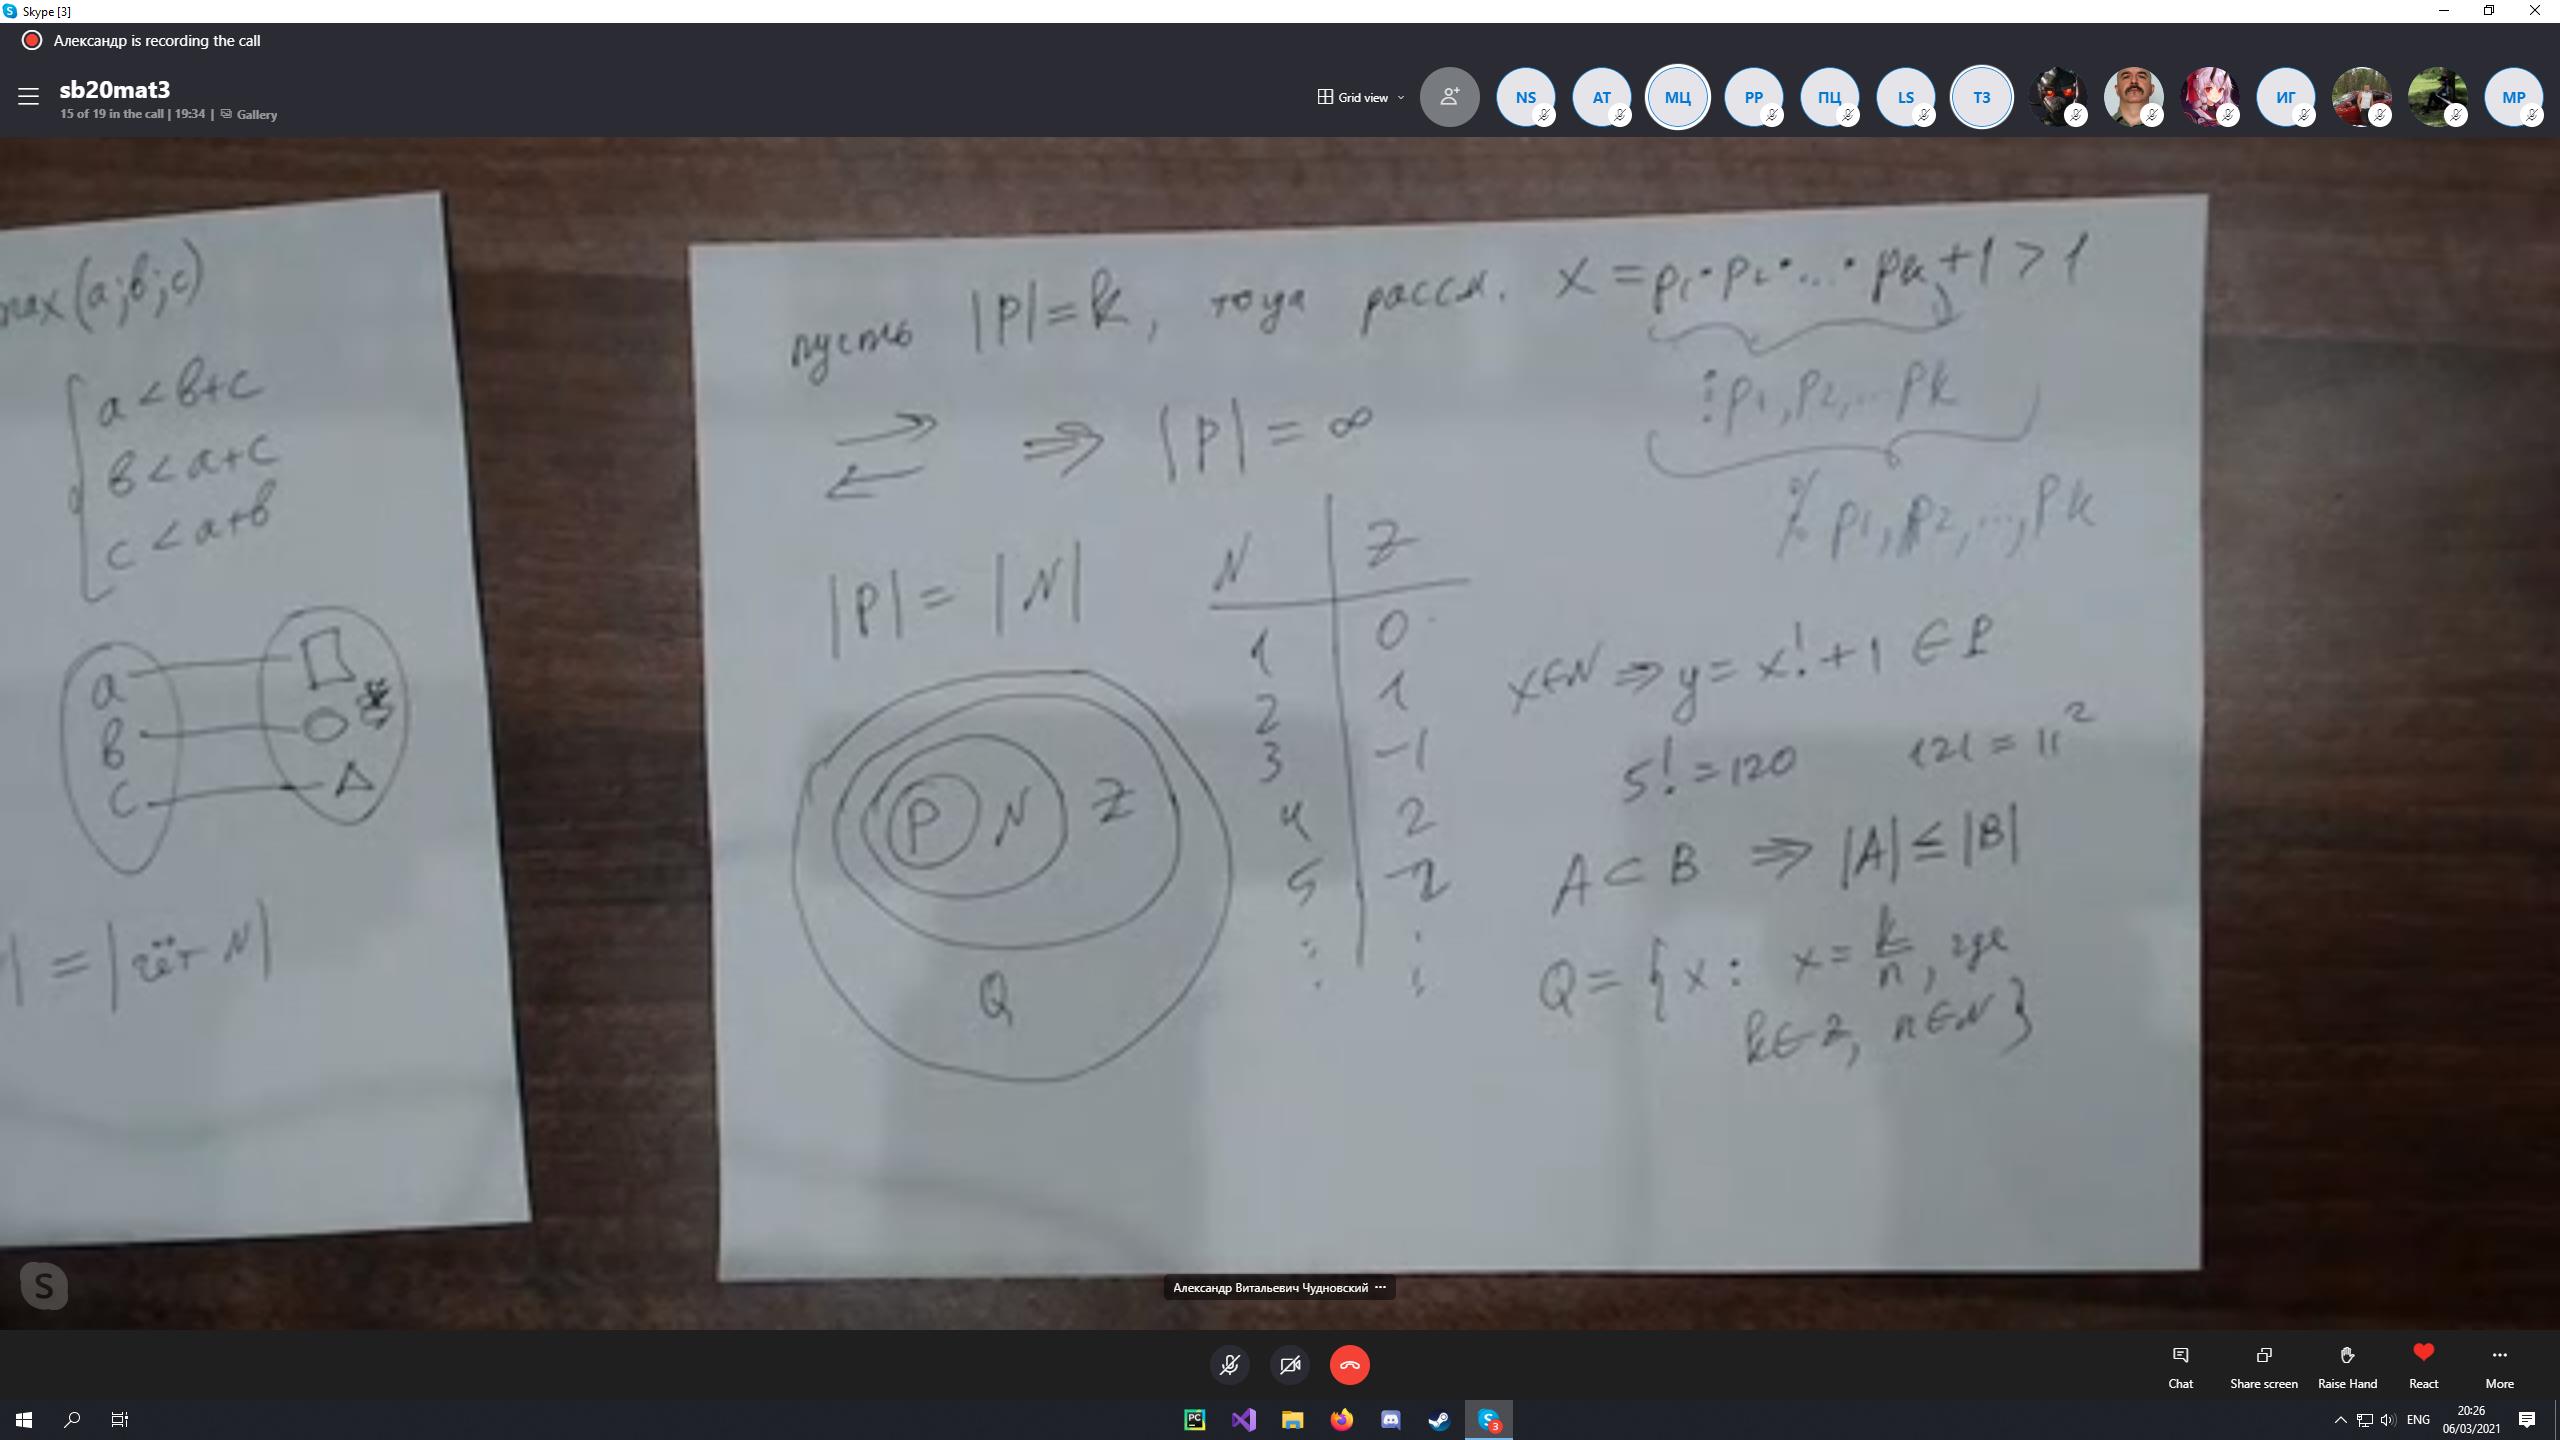 Skype [3]
Александр is recording the call
sb20mat3
15 of 19 in the call | 19:34 | Gallery
Grid view
NS
AT
МЦ
PP
ПЦ
LS
ТЗ
ИГ
MP
max(a;b;c)
a < b+c
b < a+c
c < a+b
a
b
c
| = |чёт N|
пусть |P|=k, тогда рассм. x = p₁·p₂·...·pₖ+1 > 1
⋮ p₁, p₂, ... pₖ
⋮̸ p₁, p₂, ..., pₖ
⇒ |P| = ∞
|P| = |N|
N | Z
1 | 0
2 | 1
3 | -1
4 | 2
5 | -2
⋮ | ⋮
P N Z
Q
x∈N ⇒ y = x! + 1 ∈ P
5! = 120 121 = 11²
A ⊂ B ⇒ |A| ≤ |B|
Q = {x : x = k/n, где
k∈Z, n∈N}
Александр Витальевич Чудновский
Chat
Share screen
Raise Hand
React
More
ENG
20:26
06/03/2021